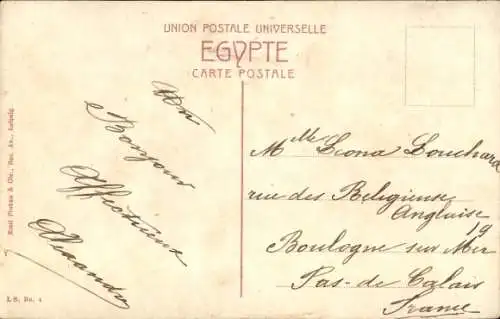 UNION POSTALE UNIVERSELLE
EGYPTE
CARTE POSTALE
Un
Bonjour
Affectueux
Alexandre
Mlle Leona Bouchard
rue des Religieuse
Anglaise
19
Boulogne sur Mer
Pas-de Calais
France
Emil Pinkau & Cie., Soc. An., Leipzig
I. S. No. 4